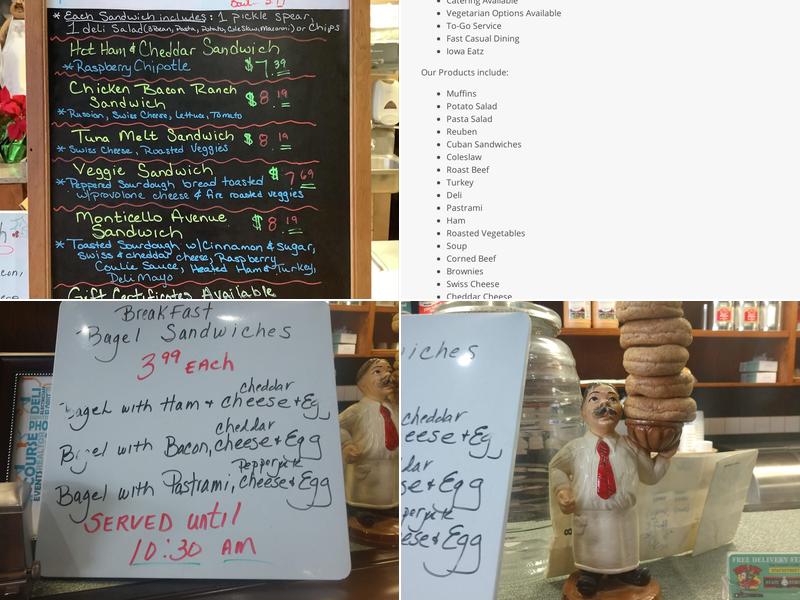 * Each Sandwich includes: 1 pickle spear,
1 deli Salad (3 Bean, Pasta, Potato, Coleslaw, Macaroni) or Chips
Hot Ham & Cheddar Sandwich
* Raspberry Chipotle $7.39
Chicken Bacon Ranch
Sandwich $8.19
* Russian, Swiss Cheese, Lettuce, Tomato
Tuna Melt Sandwich $8.19
* Swiss Cheese, Roasted Veggies
Veggie Sandwich $7.69
* Peppered Sourdough bread toasted
w/provolone cheese & fire roasted veggies
Monticello Avenue
Sandwich $8.19
* Toasted Sourdough w/Cinnamon & Sugar,
Swiss & cheddar cheese, Raspberry
Coulie Sauce, Heated Ham & Turkey,
Deli Mayo
Gift Certificates Available
Catering Available
Vegetarian Options Available
To-Go Service
Fast Casual Dining
Iowa Eatz
Our Products include:
Muffins
Potato Salad
Pasta Salad
Reuben
Cuban Sandwiches
Coleslaw
Roast Beef
Turkey
Deli
Pastrami
Ham
Roasted Vegetables
Soup
Corned Beef
Brownies
Swiss Cheese
Cheddar Cheese
BreakFast
Bagel Sandwiches
3.99 EACH
Bagel with Ham & cheddar cheese & Egg
Bagel with Bacon, cheddar cheese & Egg
Bagel with Pastrami, Pepperjack cheese & Egg
SERVED until
10:30 AM
DELI
COURSE
EVENTS
iches
cheddar
eese & Eg
dar
se & Egg
ese & Egg
FREE DELIVERY